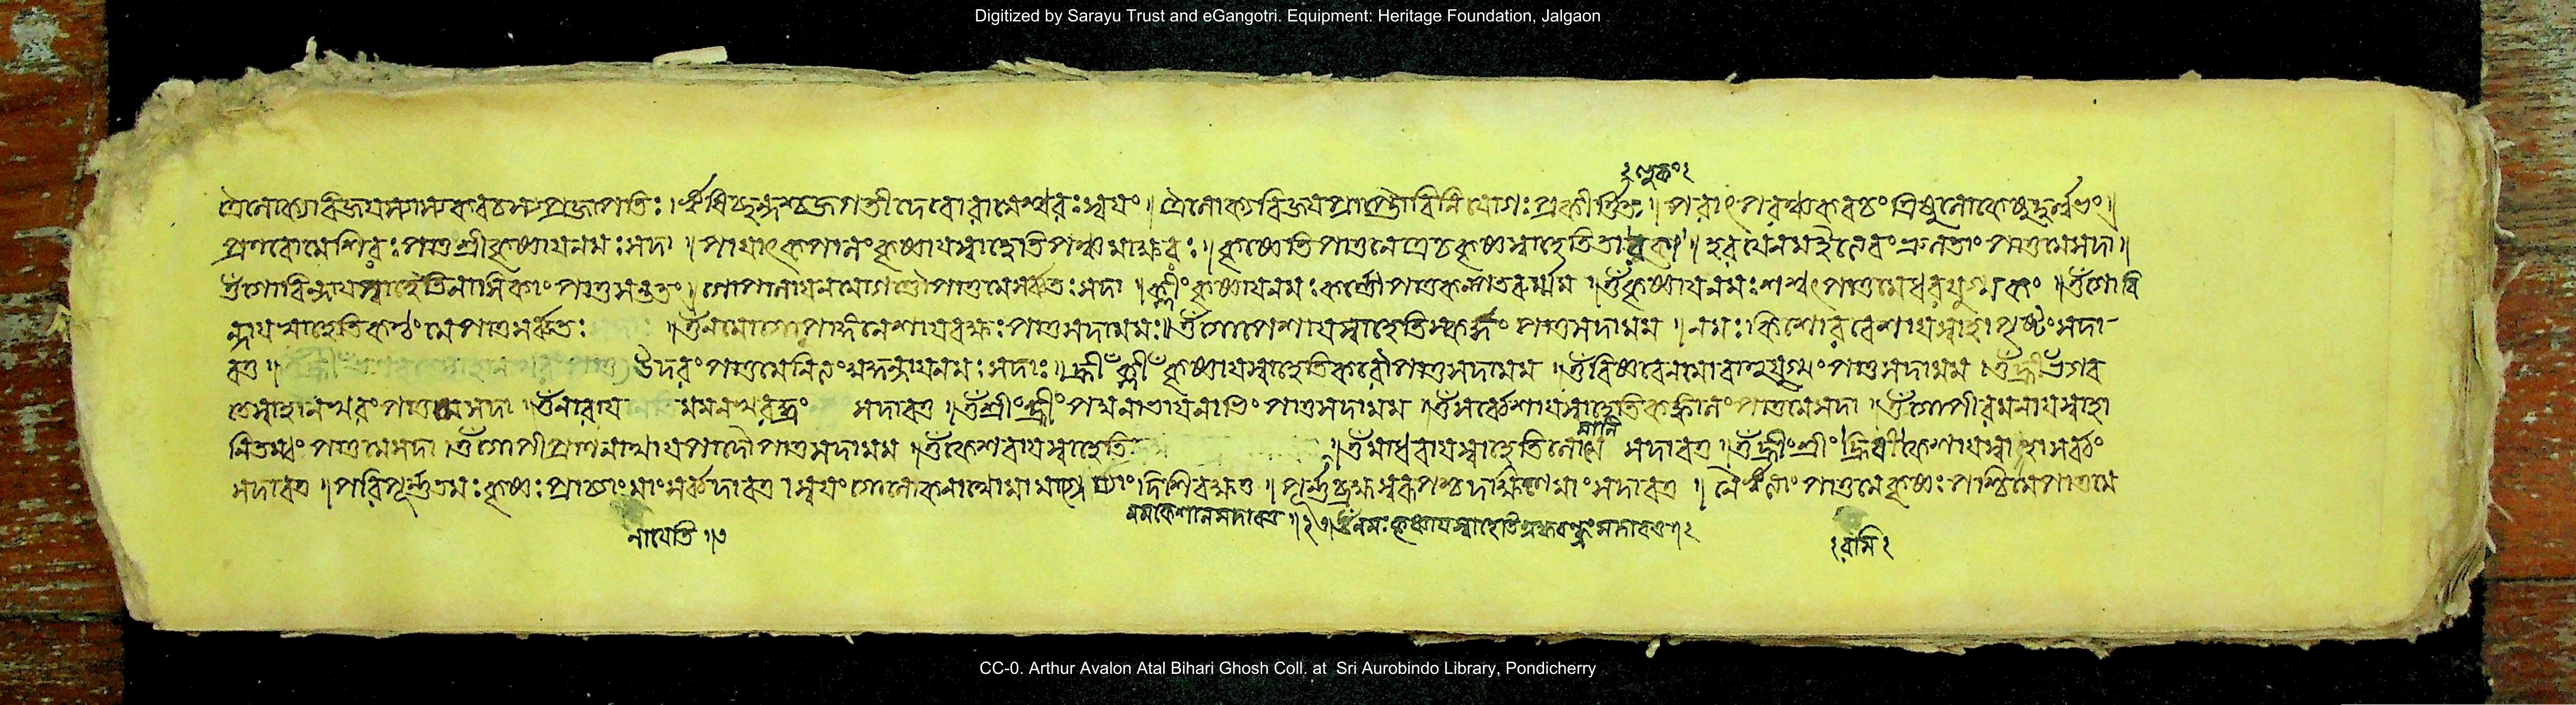 Digitized by Sarayu Trust and eGangotri. Equipment: Heritage Foundation, Jalgaon
ত্রৈলোক্যবিজয়স্যাস্যকবচস্যপ্রজাপতিঃ। ঋষিশ্ছন্দশ্চজগতীদেবোরামেশ্বরঃস্বয়ং॥ ত্রৈলোক্যবিজয়প্রাপ্তৌবিনিয়োগঃপ্রকীর্ত্তিতঃ॥ পরাৎপরঞ্চকবচং ত্রিষুলোকেষুদুর্ল্লভং॥
প্রণবোমেশিরঃপাতুশ্রীকৃষ্ণায়নমঃসদা॥ পায়াৎকপালংকৃষ্ণায়স্বাহেতিপঞ্চমাক্ষরঃ॥ কৃষ্ণেতিপাতুনেত্রেচকৃষ্ণস্বাহেতিতারকা॥ হরয়েনমইত্যেবংভ্রূলতাং পাতুমেসদা॥
ওঁগোবিন্দায়স্বাহেতিনাসিকাং পাতুসন্ততং॥ গোপালায়নমোগণ্ডৌপাতুমেসর্ব্বতঃসদা॥ ক্লীঁংকৃষ্ণায়নমঃকর্ণৌপাতুকল্পতরুর্ম্মম॥ ওঁকৃষ্ণায়নমঃশশ্বৎপাতুমেধরযুগ্মকং॥ ওঁগোবি
ন্দায়স্বাহেতিকণ্ঠং মেপাতুসর্ব্বতঃ ॥ ওঁনমোগোপাঙ্গনেশায়বক্ষঃপাতুসদামমঃ॥ ওঁগোপেশায়স্বাহেতিস্কন্ধং পাতুসদামম॥ নমঃকিশোরবেশায়স্বাহাপৃষ্ঠংসদা
বতু॥ উদরংপাতুমেনিত্যংমুকুন্দায়নমঃসদাঃ॥ হ্রীঁক্লীঁকৃষ্ণায়স্বাহেতিকরৌপাতুসদামম॥ ওঁবিষ্ণবেনমোবাহুযুগ্মং পাতুসদামম। ওঁহ্রীঁভগব
তেস্বাহানখরংপাতুমেসদা। ওঁনারায় মমনখরন্ধ্রং সদাবতু॥ ওঁশ্রীঁংহ্রীঁংপদ্মনাভায়নাভিং পাতুসদামম॥ ওঁসর্ব্বেশায়স্বাহেতিকঙ্কালংপাতুমেসদা॥ ওঁগোপীরমনায়স্বাহা
নিতম্বং পাতুমেসদা। ওঁগোপীপ্রাণনাথায়পাদৌপাতুসদামম॥ ওঁকেশবায়স্বাহেতি ॥ ওঁমাধবায়স্বাহেতিলোমানি সদাবতু॥ ওঁহ্রীঁংশ্রীঁং স্বাহাসর্ব্বং
সদাবতু॥ পরিপূর্ণতমঃকৃষ্ণঃপ্রাচ্যাংমাংসর্ব্বদাবতু। স্বয়ংগোলোকনাথোমামাগ্নেয্যাংদিশিরক্ষতু॥ পূর্ণব্রহ্মস্বরূপশ্চদক্ষিণেমাংসদাবতু॥ নৈর্ঋত্যাংপাতুমেকৃষ্ণঃপশ্চিমেপাতুমে
মমকেশানসদাবতু॥ ২ ওঁনমঃকৃষ্ণায়স্বাহেতিব্রহ্মরন্ধ্রংসদাবতু॥ ২
CC-0. Arthur Avalon Atal Bihari Ghosh Coll. at Sri Aurobindo Library, Pondicherry